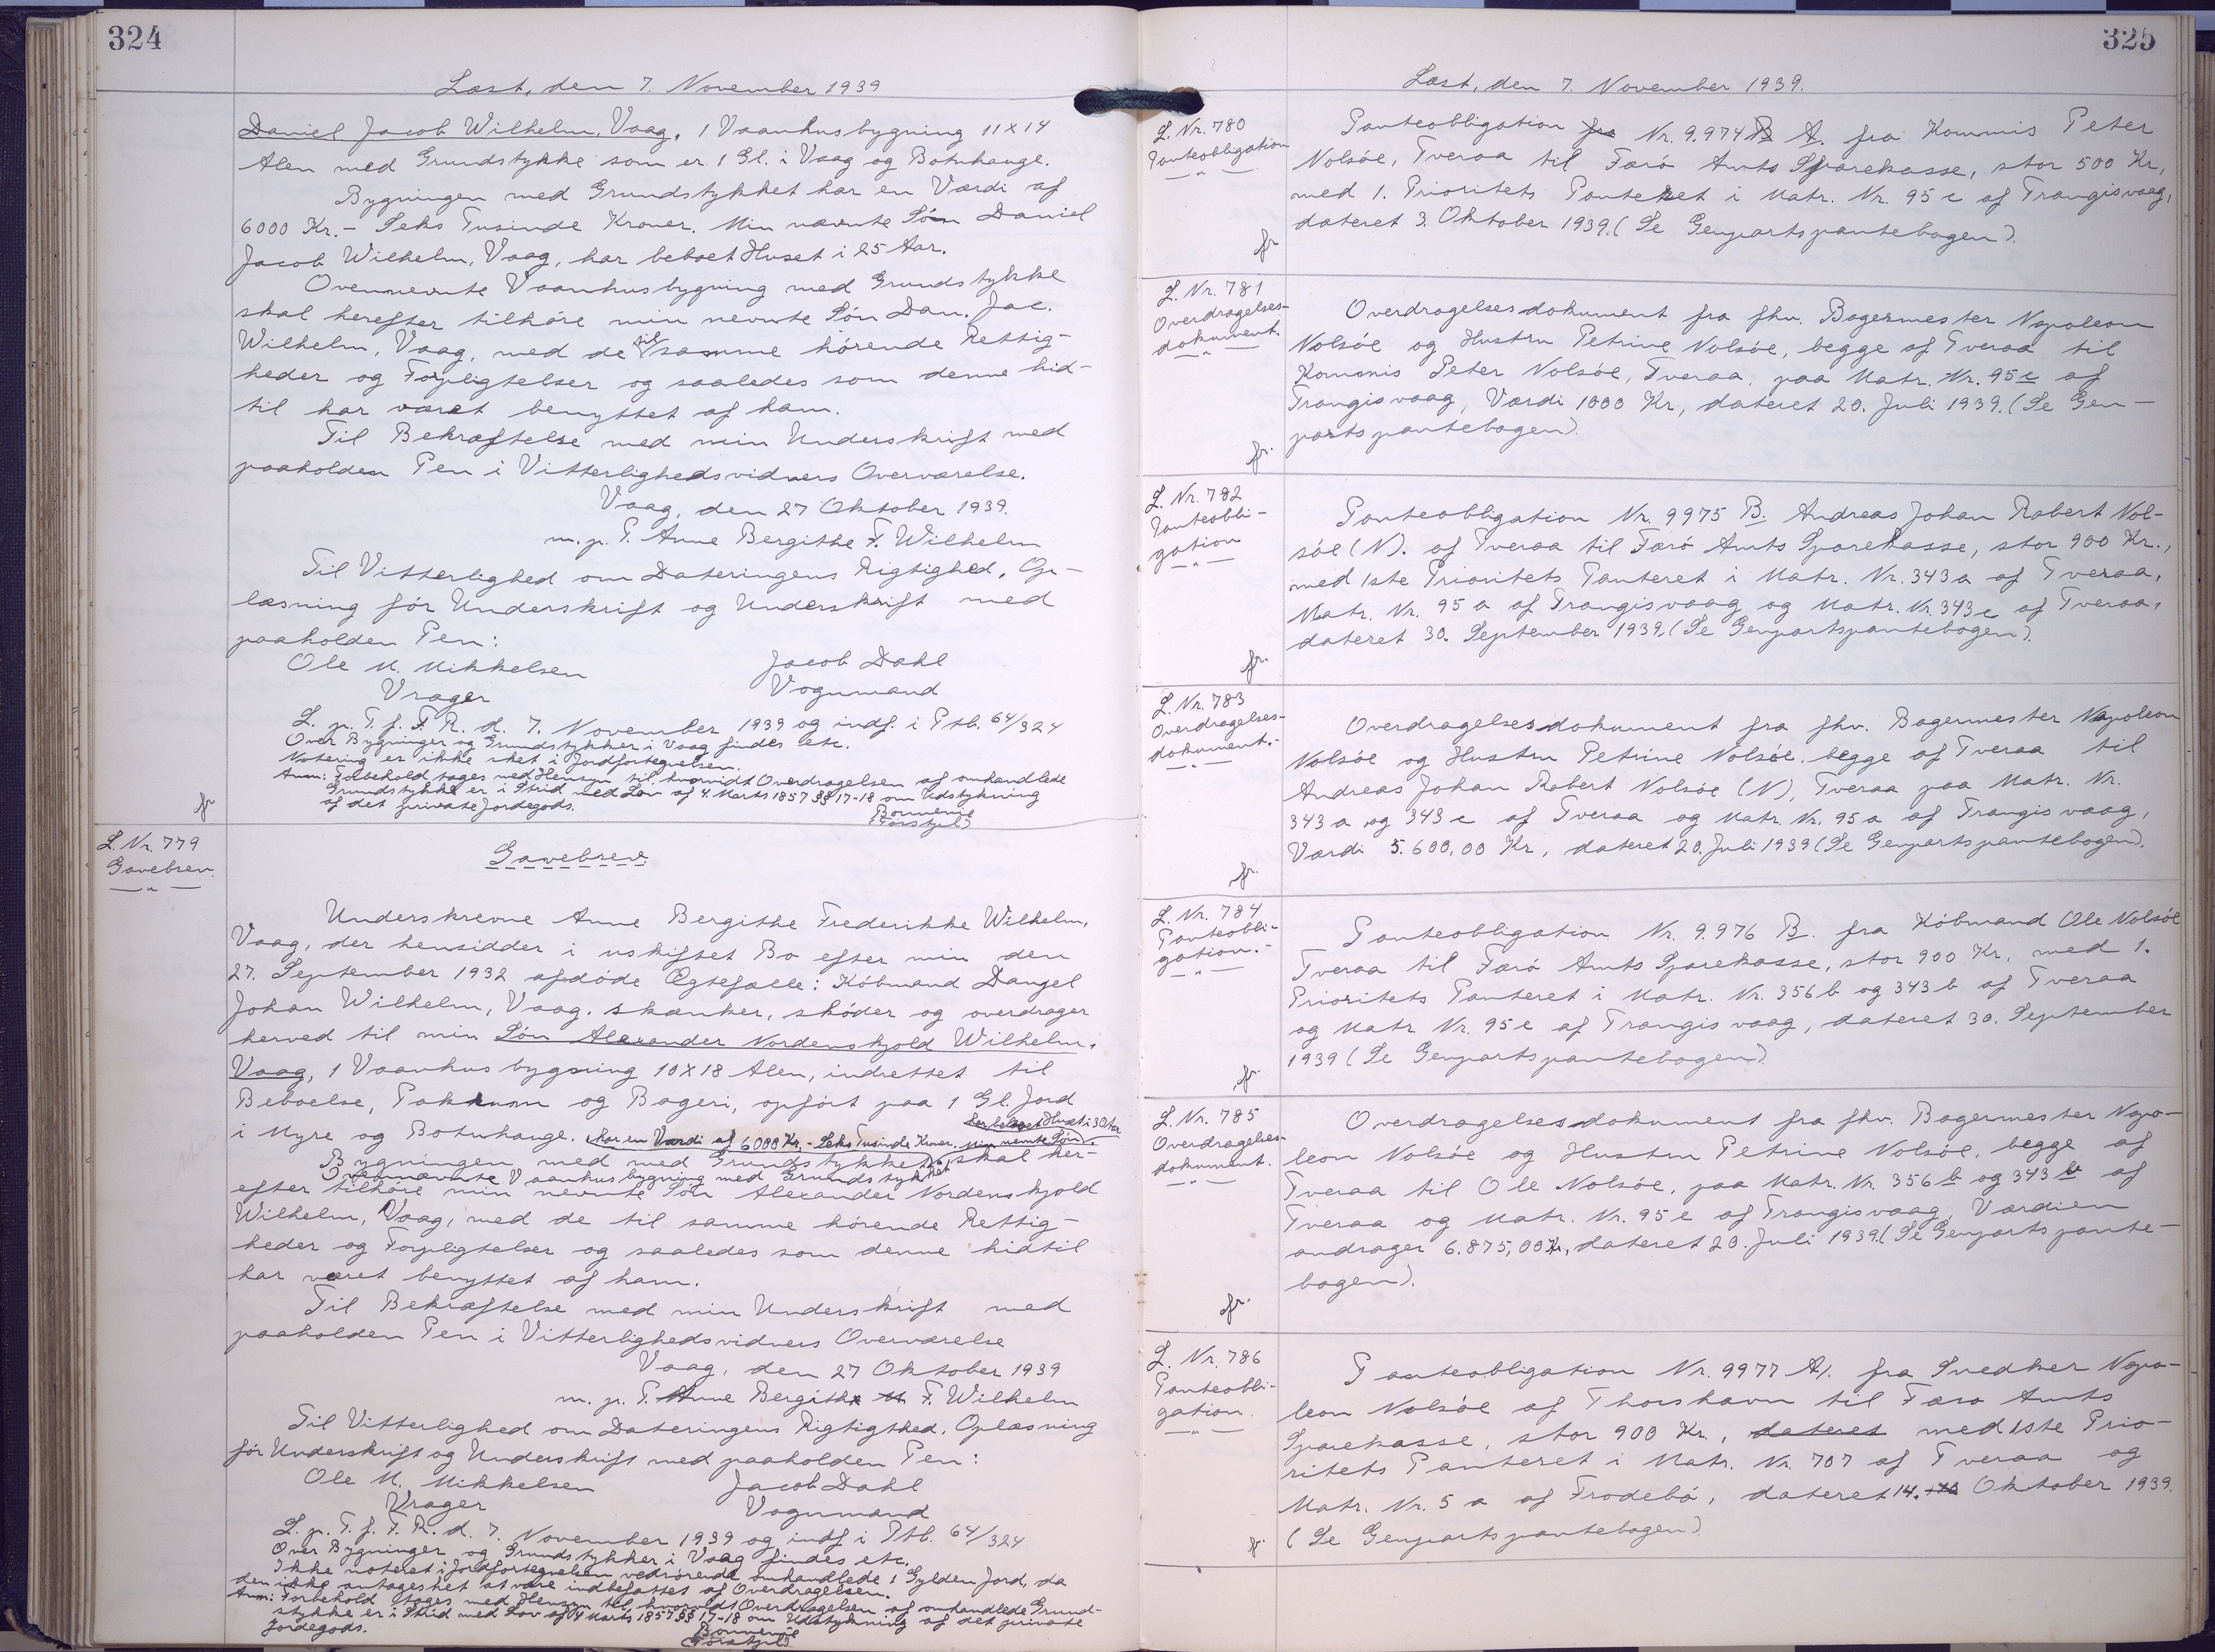 324
Læst, den 7. November 1939
Daniel Jacob Wilhelm, Vaag, 1 Vaanhusbygning 11 x 14
Alen med Grundstykke som er 1 Gl. i Vaag og Botnhauge.
Bygningen med Grundstykket har en Værdi af
6000 Kr. - Seks Tusinde Kroner. Min nævnte Søn Daniel
Jacob Wilhelm, Vaag, har beboet Huset i 25 Aar.
Ovennævnte Vaanhusbygning med Grundstykke
skal herefter tilhøre min nevnte Søn Dan. Jac.
Wilhelm, Vaag, med de til samme hørende Rettig-
heder og Forpligtelser og saaledes som denne hid-
til har været benyttet af ham.
Til Bekræftelse med min Underskrift med
paaholden Pen i Vitterlighedsvidners Overværelse.
Vaag, den 27 Oktober 1939.
m. p. P. Anne Bergithe F. Wilhelm
Til Vitterlighed om Dateringens Rigtighed, Op-
læsning før Underskrift og Underskrift med
paaholden Pen:
Ole M. Mikkelsen Jacob Dahl
Vrager Vognmand
L. p. T. f. F. R. d. 7. November 1939 og indf. i Ptb. 64/324
Over Bygninger og Grundstykker i Vaag findes etc.
Notering er ikke sket i Jordfortegnelsen.
Anm: Forbehold tages med Hensyn til, hvorvidt Overdragelsen af omhandlede
Grundstykke er i Strid med Lov af 4. Marts 1857 §§ 17-18 om Udstykning
af det private Jordegods.
Bonnevie
(Sorstfel)
fr
L. Nr. 779
Gavebrev.
Gavebrev.
Underskrevne Anne Bergithe Frederikke Wilhelm,
Vaag, der hensidder i uskiftet Bo efter min den
27. September 1932 afdøde Ægtefælle: Købmand Danjel
Johan Wilhelm, Vaag, skænker, skøder og overdrager
herved til min Søn Alexander Nordenskjold Wilhelm,
Vaag, 1 Vaanhusbygning 10 x 18 Alen, indrettet til
Beboelse, Pakrum og Bageri, opført paa 1 Gl. Jord
i Myre og Botnhauge. har en Værdi af 6000 Kr. - Seks Tusinde Kroner. Min nevnte Søn har beboet Huset i 30 Aar.
Bygningen med med Grundstykket skal her-
Ovennævnte Vaanhusbygning med Grundstykket
efter tilhøre min nevnte Søn Alexander Nordenskjold
Wilhelm, Vaag, med de til samme hørende Rettig-
heder og Forpligtelser og saaledes som denne hidtil
har været benyttet af ham.
Til Bekræftelse med min Underskrift med
paaholden Pen i Vitterlighedsvidners Overværelse
Vaag, den 27 Oktober 1939
m. p. P. Anne Bergithe F. Wilhelm
Til Vitterlighed om Dateringens Rigtigthed, Oplæsning
før Underskrift og Underskrift med paaholden Pen:
Ole M. Mikkelsen Jacob Dahl
Vrager Vognmand
L. p. T. f. F. R. d. 7. November 1939 og indf. i Ptb. 64/324
Over Bygninger og Grundstykker i Vaag findes etc.
Ikke noteret i Jordfortegnelsen vedrørende omhandlede 1 Gylden Jord, da
den ikke antages het at være indbefattet af Overdragelsen.
Anm: Forbehold tages med Hensyn til, hvorvidt Overdragelsen af omhandlede Grund-
stykke er i Strid med Lov af 4 Marts 1857 §§ 17-18 om Udstykning af det private
Jordegods.
Bonnevie
(Sorstfel)
325
Læst, den 7. November 1939.
L. Nr. 780
Panteobligation
Panteobligation fra Nr. 9.974 B A. fra Kommis Peter
Nolsøe, Tveraa til Færø Amts Sparekasse, stor 500 Kr,
med 1. Prioritets Panteret i Matr. Nr. 95 c af Trangisvaag,
dateret 3. Oktober 1939. (Se Genpartspantebogen).
fr
L. Nr. 781
Overdragelses-
dokument.
Overdragelsesdokument fra fhv. Bagermester Napoleon
Nolsøe og Hustru Petrine Nolsøe, begge af Tveraa til
Kommis Peter Nolsøe, Tveraa, paa Matr. Nr. 95 c af
Trangisvaag, Værdi 1000 Kr, dateret 20. Juli 1939. (Se Gen-
partspantebogen).
fr.
L. Nr. 782
Panteobli-
gation
Panteobligation Nr. 9975 B. Andreas Johan Robert Nol-
søe (N). af Tveraa til Færø Amts Sparekasse, stor 900 Kr.,
med 1ste Prioritets Panteret i Matr. Nr. 343 a af Tveraa,
Matr. Nr. 95 a af Trangisvaag og Matr. Nr. 343 c af Tveraa,
dateret 30. September 1939. (Se Genpartspantebogen).
fr.
L. Nr. 783
Overdragelses-
dokument.-
Overdragelsesdokument fra fhv. Bagermester Napoleon
Nolsøe og Hustru Petrine Nolsøe, begge af Tveraa til
Andreas Johan Robert Nolsøe (N), Tveraa paa Matr. Nr.
343 a og 343 c af Tveraa og Matr. Nr. 95 a af Trangisvaag,
Værdi 5.600,00 Kr, dateret 20. Juli 1939 (Se Genpartspantebogen).
fr.
L. Nr. 784
Panteobli-
gation.-
Panteobligation Nr. 9.976 B. fra Købmand Ole Nolsøe
Tveraa til Færø Amts Sparekasse, stor 900 Kr, med 1.
Prioritets Panteret i Matr. Nr. 356 b og 343 b af Tveraa
og Matr Nr. 95 e af Trangisvaag, dateret 30. September
1939 (Se Genpartspantebogen)
fr.
L. Nr. 785
Overdragelses-
dokument.
Overdragelsesdokument fra fhv. Bagermester Napo-
leon Nolsøe og Hustru Petrine Nolsøe, begge af
Tveraa til Ole Nolsøe, paa Matr. Nr. 356 b og 343 b af
Tveraa og Matr. Nr. 95 e af Trangisvaag, Værdien
andrager 6.875,00 Kr, dateret 20. Juli 1939. (Se Genpartspante-
bogen).
fr.
L. Nr. 786
Panteobli-
gation.
Panteobligation Nr. 9977 A). fra Snedker Napo-
leon Nolsøe af Thorshavn til Færø Amts
Sparekasse, stor 900 Kr., dateret med 1ste Prio-
ritets Panteret i Matr. Nr. 707 af Tveraa og
Matr. Nr. 5 a af Frodebø, dateret 14. Oktober 1939.
(Se Genpartspantebogen)
fr